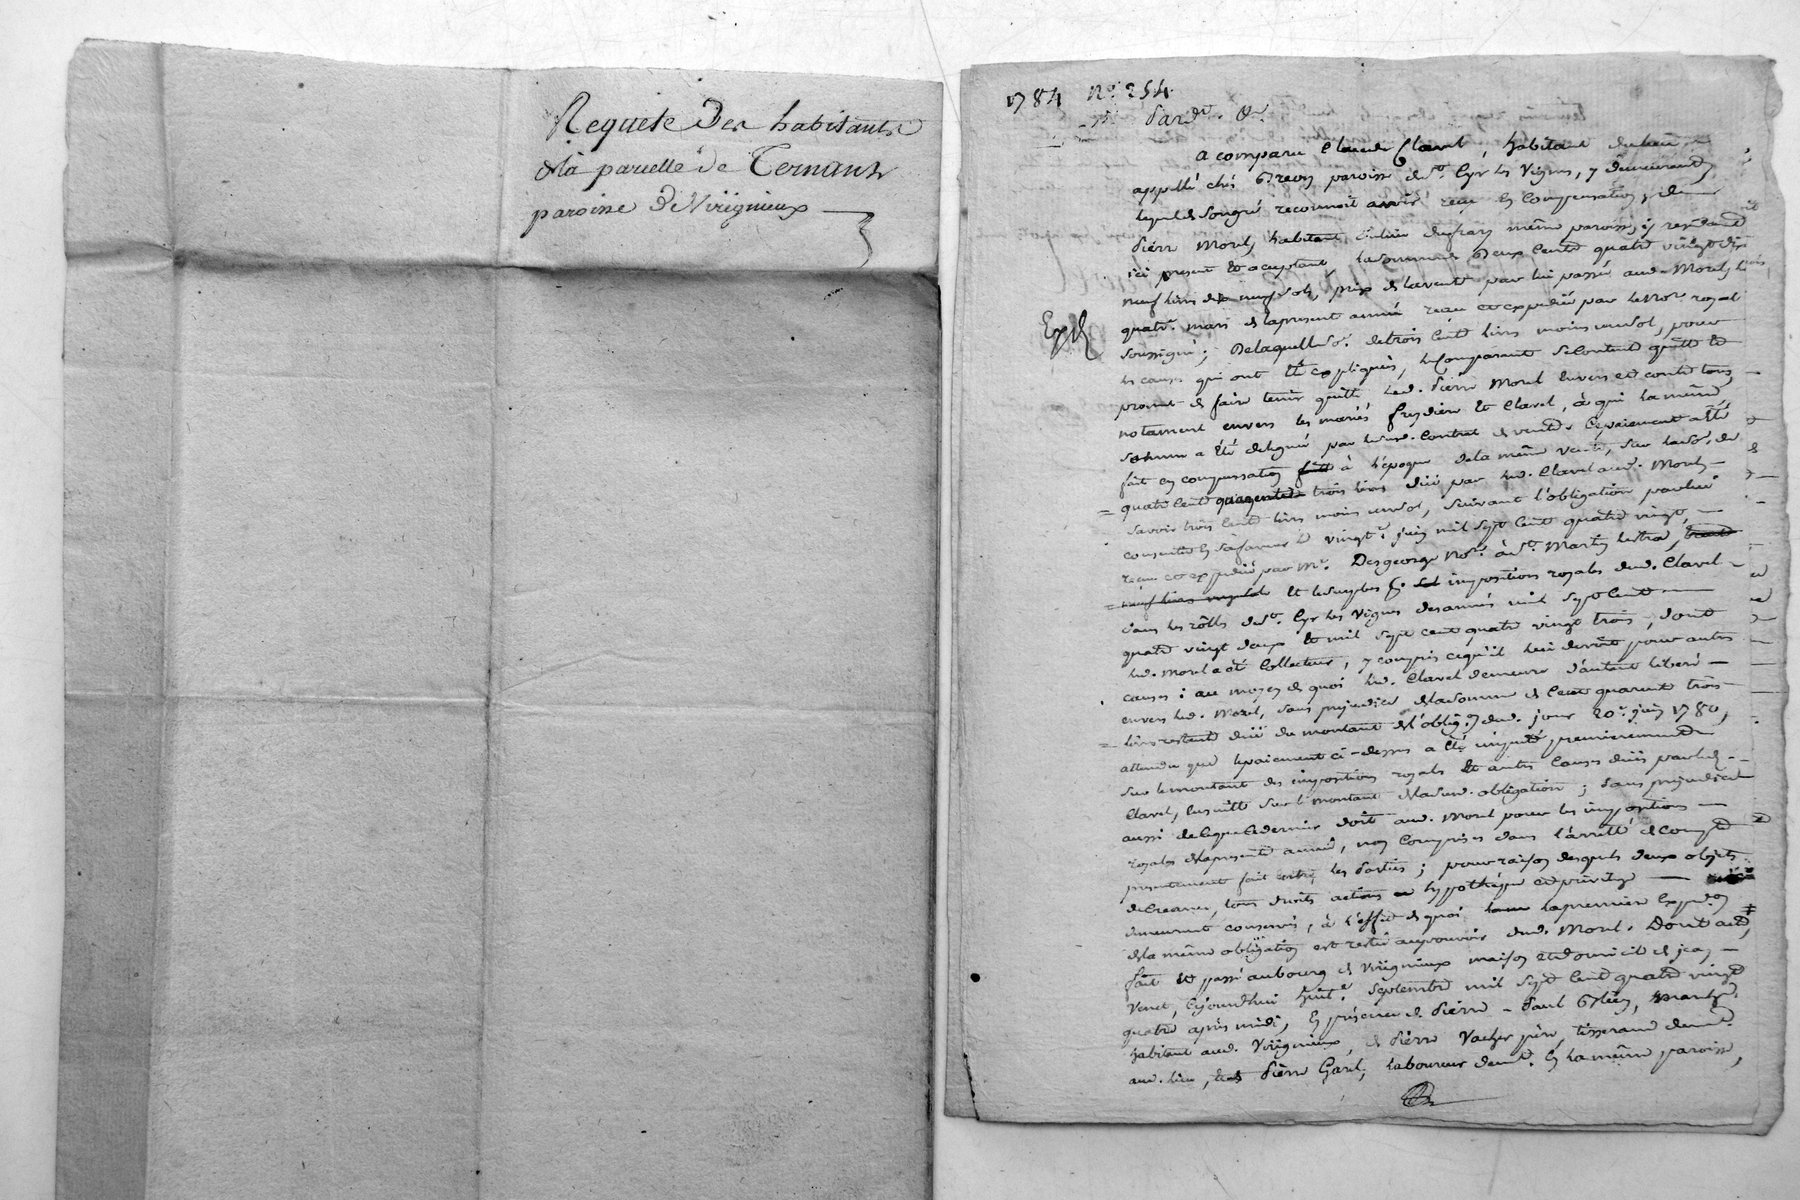 Requete Des habitants
de la parcelle de Ternants
paroisse De Viriginieux
1784 No. 254.
Pardt. &r.
Expde
a comparu Claude Clavel, habitant du lieu
appellé chés Greon paroisse de St. Cyr les Vignes, y demeurant,
lequel de son gré reconnoit avoir reçu en compensation, de
Pierre Morel, habitant même paroisse, y résidant
ici present et aceptant, la somme de Deux cent quatre vingt dix
neuf livres dix neuf sols, prix de la vente par lui passée aud. Morel, le
quatre mars de la presente année reçue et expediée par le Nore royal
soussigné; De laquelle so. de trois cent livres moins un sol, pour
les causes qui ont été expliquées, le comparant se contente quitte et
promet de faire tenir quitte led. Pierre Morel envers et contre tous,
notament envers les mariés freydiere et Clavel, à qui la même
somme a été deleguée par le sud. Contrat de vente. Ce paiement a été
fait en compensation à l'époque de la même vente, sur la so. de
quatre cent quarente trois livres düe par led. Clavel aud. Morel
savoir trois cent livres moins un sol, suivant l'obligation par lui
consentie en sa faveur le vingt juin mil sept cent quatre vingt,
reçue et expediée par Me. Desgeorge Nore. à St. Martin lestra,
et le surplus imposition royales dud. Clavel
dans les rôlles de St. Cyr les Vignes des années mil sept cent
quatre vingt deux et mil sept cent quatre vingt trois, dont
led. Morel a été Collecteur, y compris ce qu'il lui devoit pour autres
causes: au moyen de quoi led. Clavel demeure d'autant liberé
envers led. Morel, sans prejudice de la somme de Cent quarente trois
livres restante düe du montant de l'oblig.on dud. jour 20e. juin 1780,
attendu que le paiement ci-dessus a été imputé premierement
sur le montant des impositions royales et autres causes düës par led.
Clavel, ensuitte sur le montant de la sud. obligation; sans prejudice
aussi de ce que ce dernier doit aud. Morel pour les impositions
royales de la presente année, non Comprises dans l'arretté de Compte
presentement fait entre les Parties; pour raison desquels deux objets
de Creance, tous droits actions hypothéque et privilege
demeurent conservés, à l'effet de quoi la premiere Expedon
de la même obligation est restée au pouvoir dud. Morel. Dont acte,
fait et passé au bourg de Viriginieux maison et domicile de jean
Venet, Cejourd'hui huite. septembre mil sept cent quatre vingt
quatre après midi, En présence de Pierre-Paul
habitant aud. Viriginieux, de Pierre Vacher père, tisserand demt.
aud. lieu, Pierre Garel, laboureur demt. En la même paroisse,